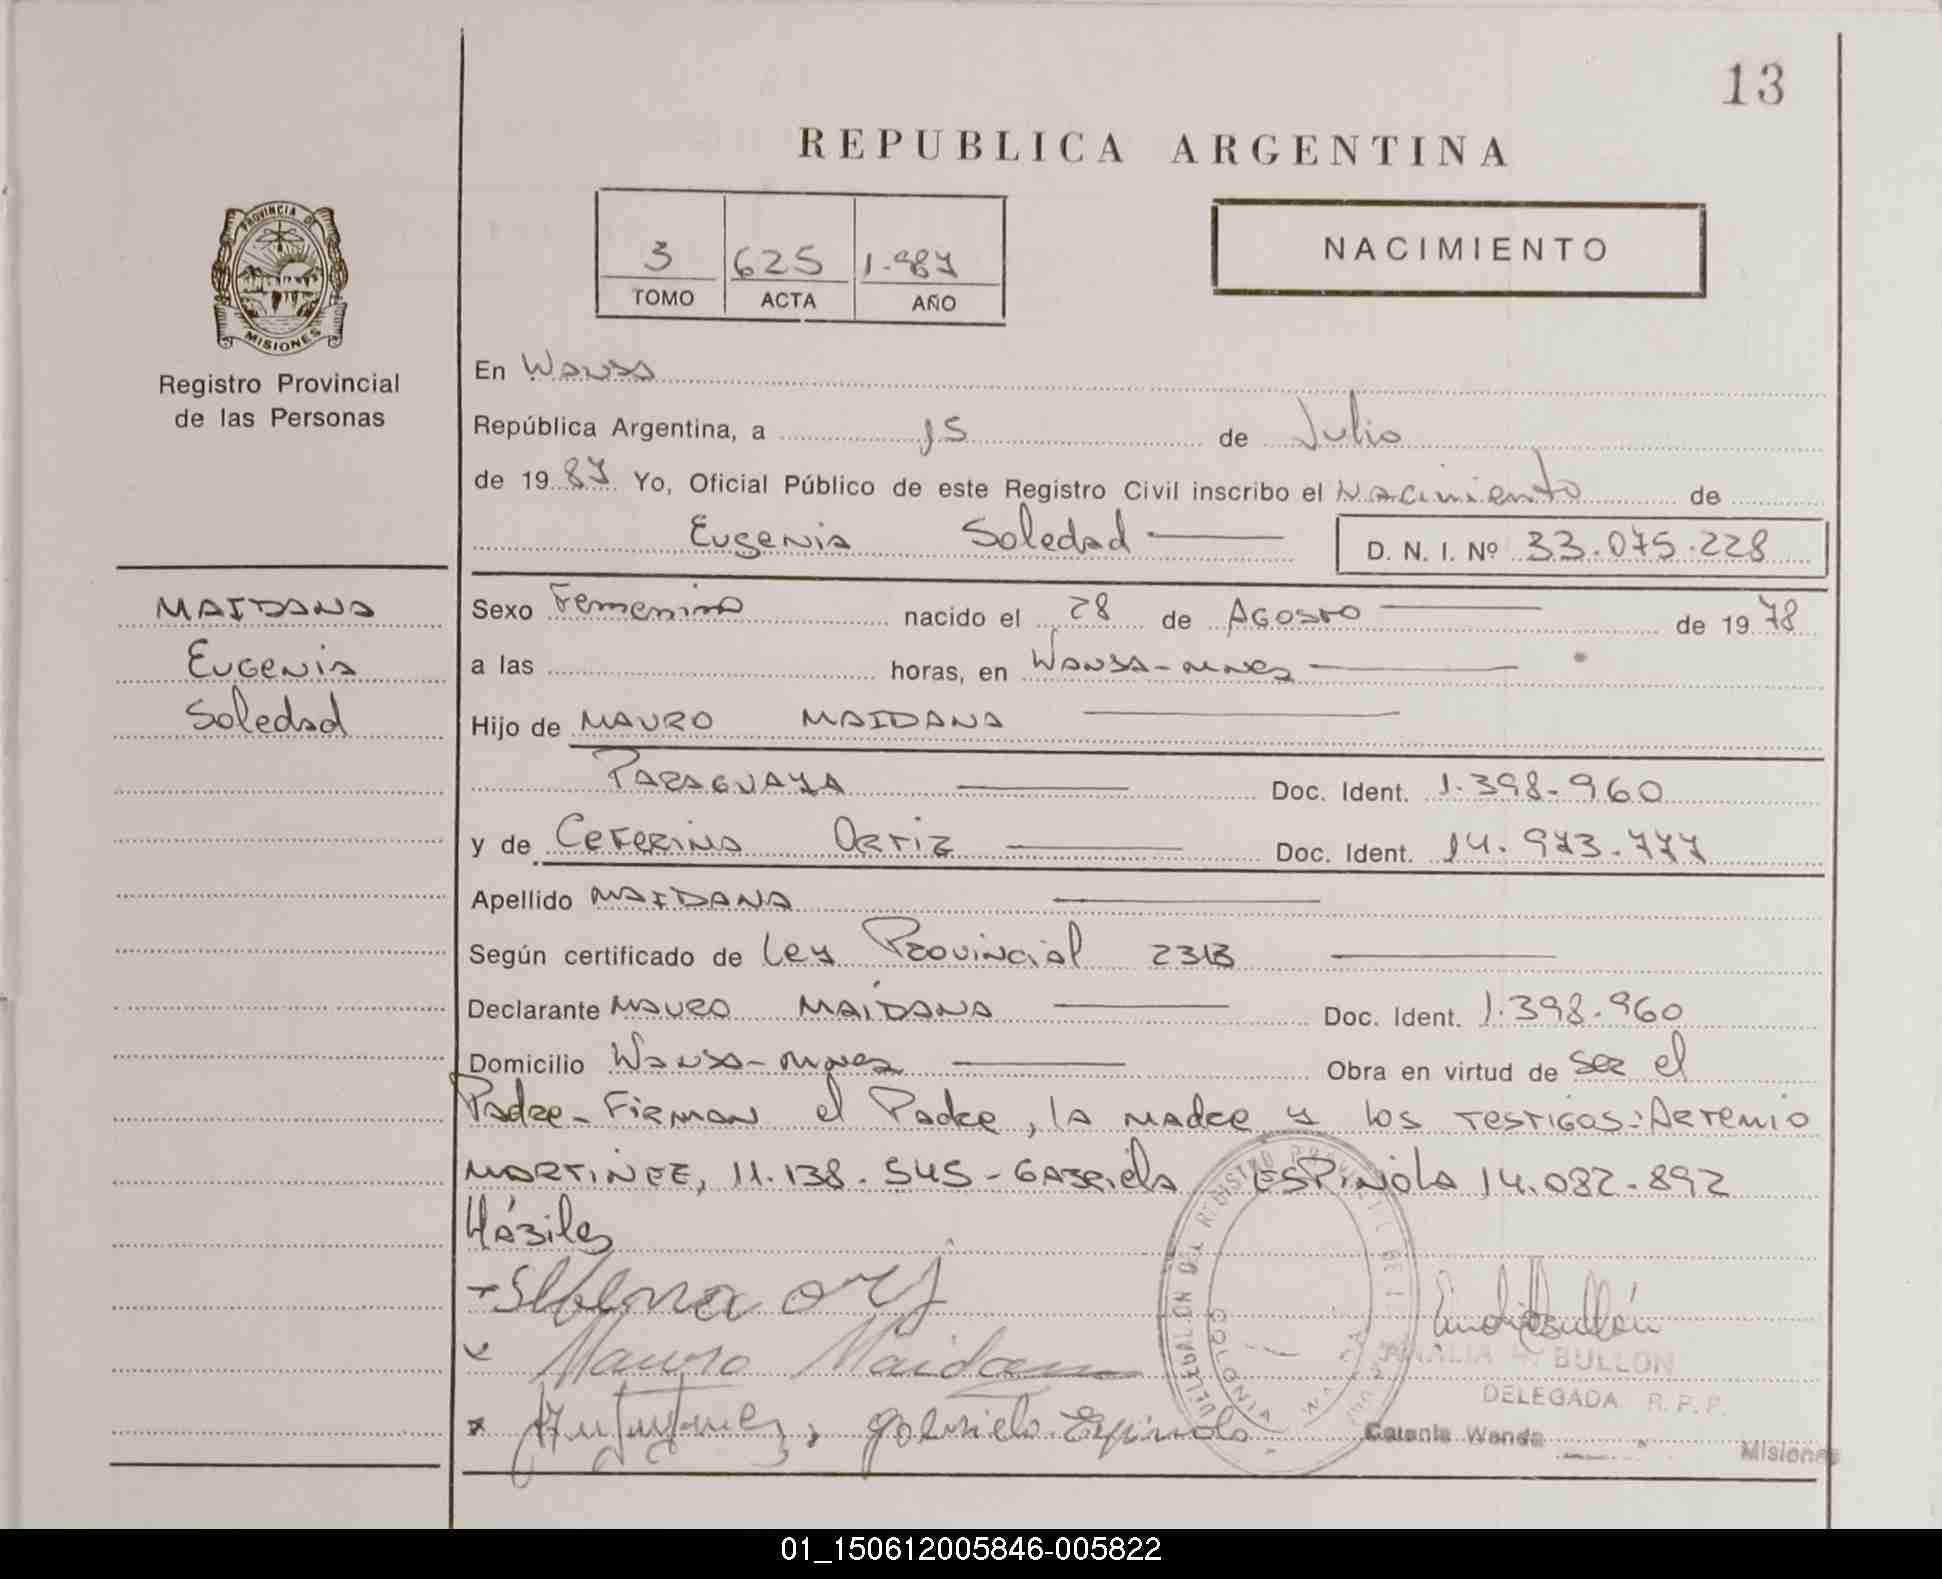 13
REPUBLICA ARGENTINA
3 625 1.987
TOMO ACTA AÑO
NACIMIENTO
PROVINCIA DE
MISIONES
Registro Provincial
de las Personas
En Wanda
República Argentina, a 15 de Julio
de 1987 Yo, Oficial Público de este Registro Civil inscribo el Nacimiento de
Eugenia Soledad D. N. I. Nº 33.075.228
MAIDANA
Eugenia
Soledad
Sexo Femenino nacido el 28 de Agosto de 1978
a las horas, en Wanda-
Hijo de MAURO MAIDANA
PARAGUAYA Doc. Ident. 1.398.960
y de Ceferina Ortiz Doc. Ident. 14.973.777
Apellido MAIDANA
Según certificado de Ley Provincial 2313
Declarante MAURO MAIDANA Doc. Ident. 1.398.960
Domicilio Wanda- Obra en virtud de ser el
Padre- Firman el Padre, la madre y los testigos: Artemio
MARTINEZ, 11.138.545- Gabriela ESPINOLA 14.082.892
Hábiles
Mauro Maidana
Gabriela Espinola
DELEGACION DEL REGISTRO
COLONIA WANDA
ANALIA BULLON
DELEGADA R. P. P.
Colonia Wanda Misiones
01_150612005846-005822